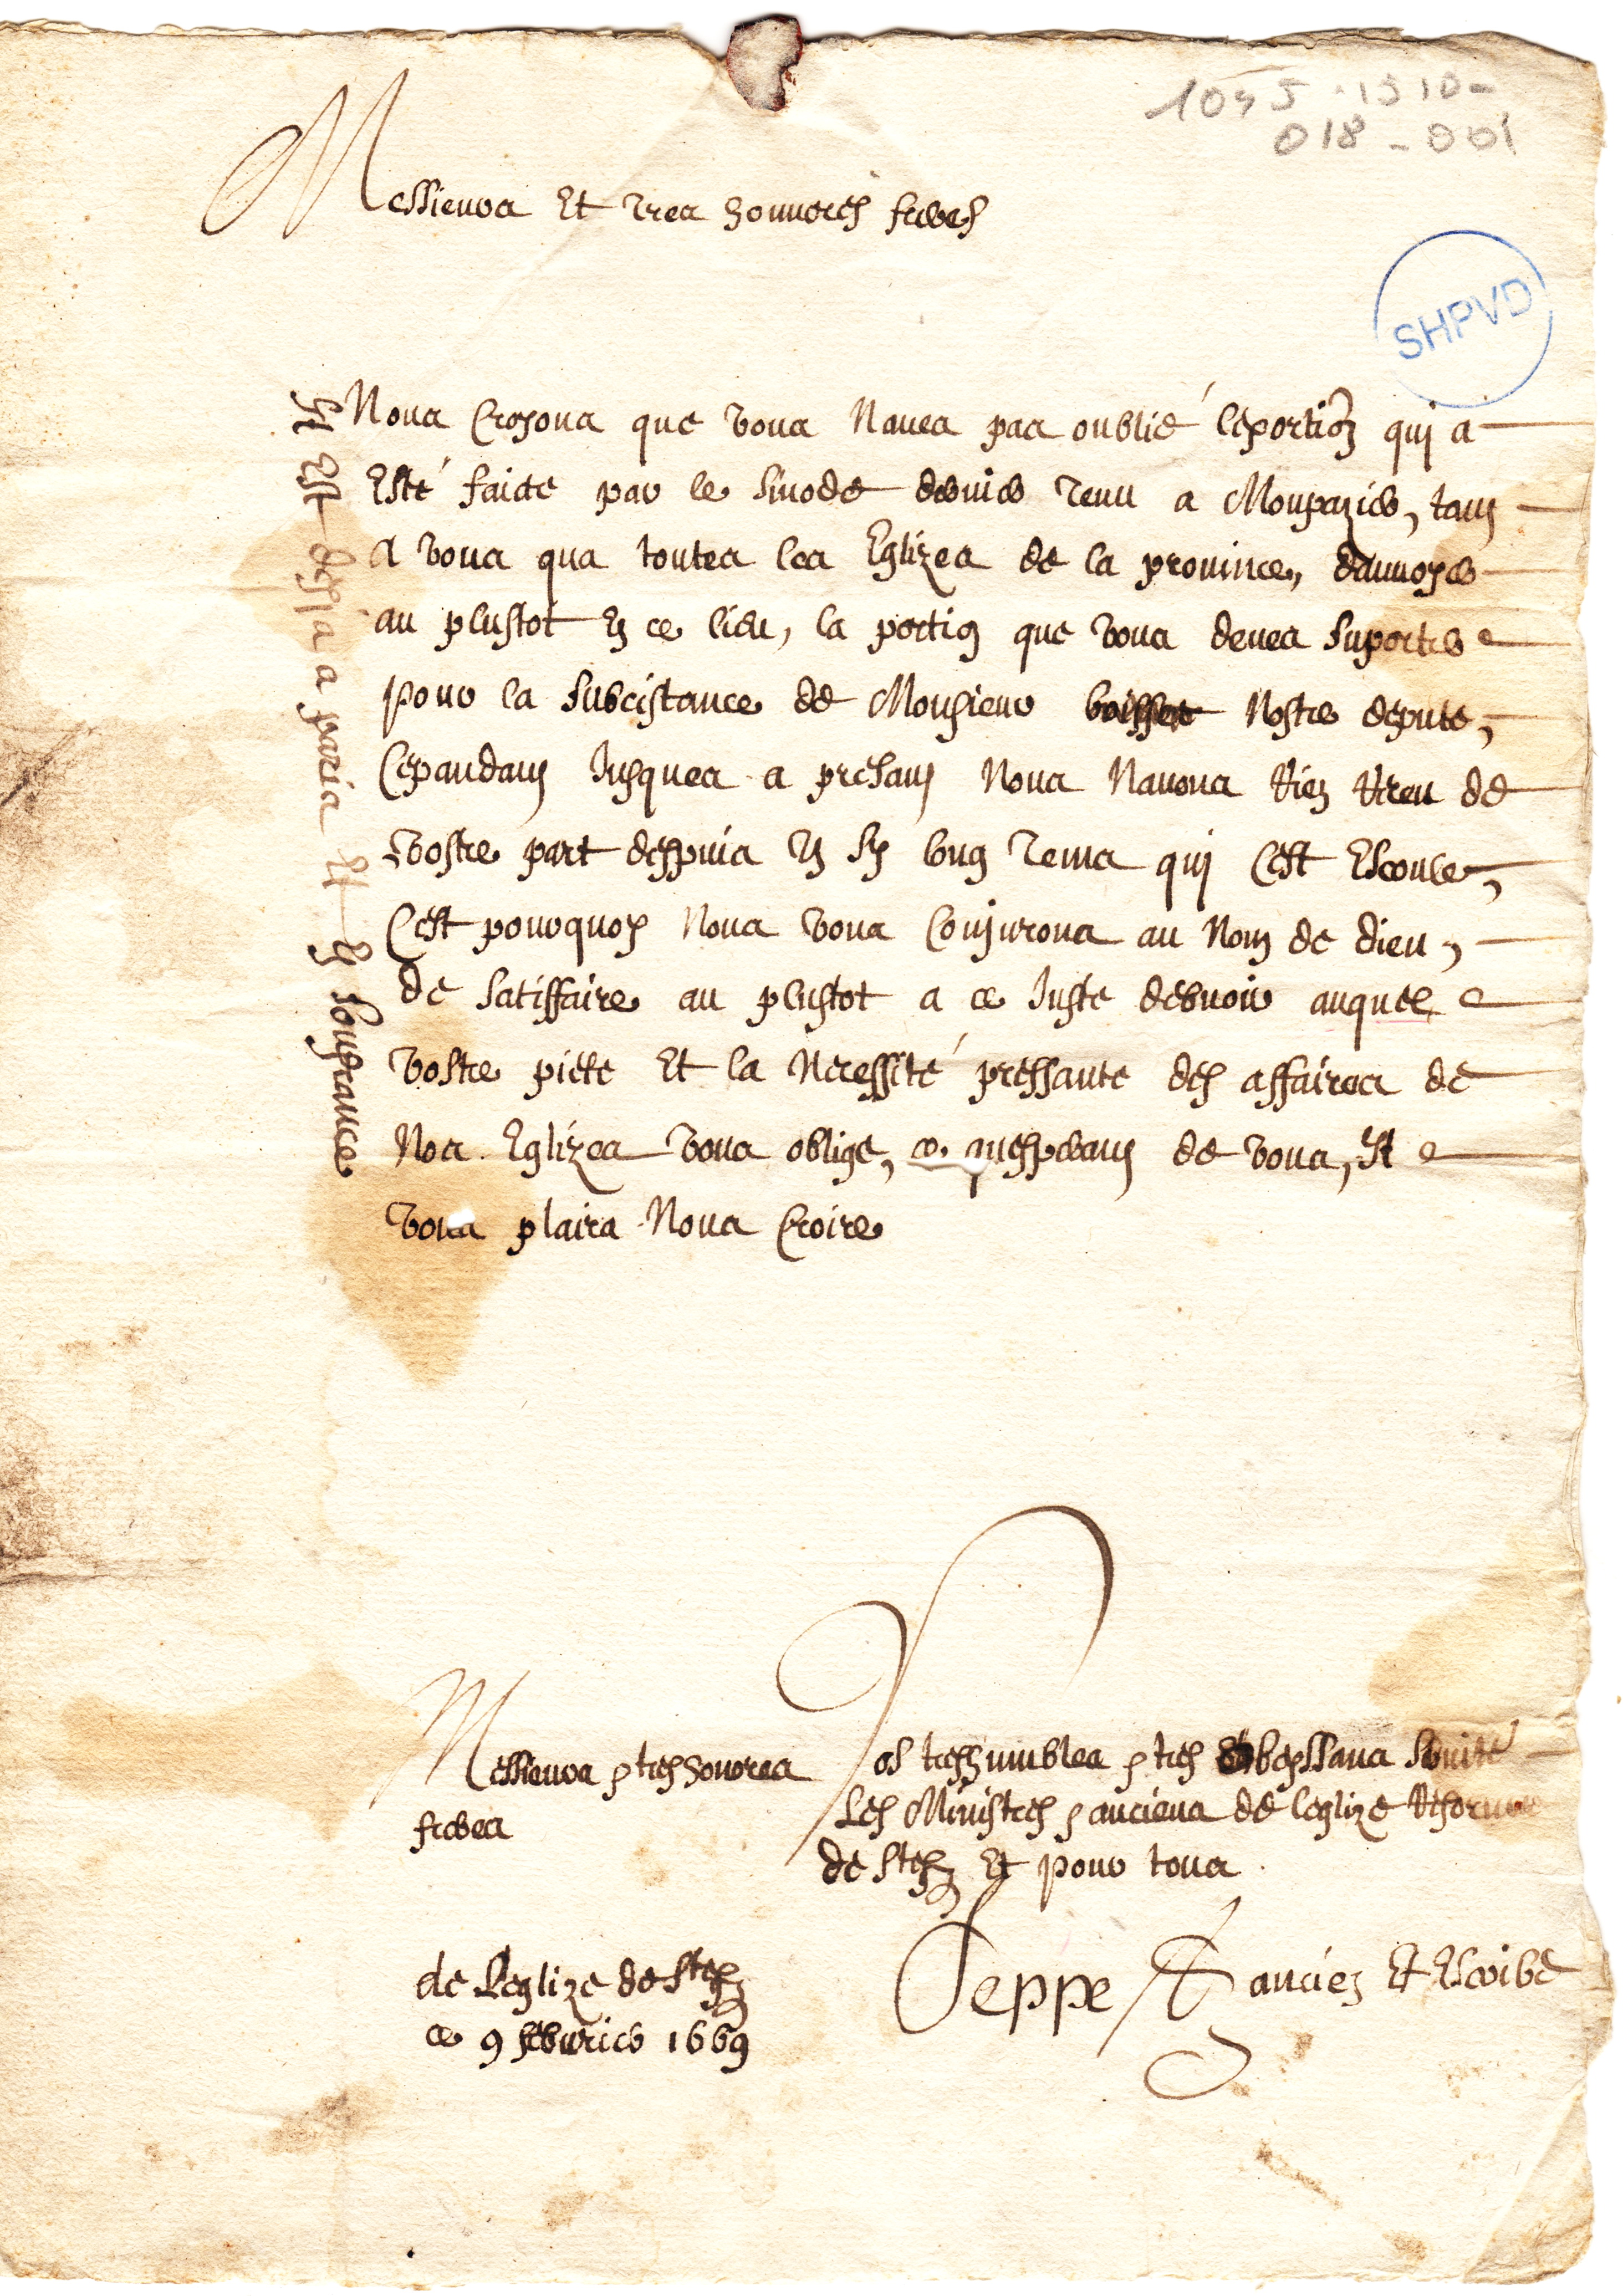 1045-1310-
018-001
Messieurs Et Tres honnorés freres
SHPVD
Nous Croyons que vous Naues pas oublié lexortion qui a
Esté faicte par le sinode dernier Tenu a Monpazier, tans
A vous qua toutes les Eglizes de la prouince, dauuoyer
au plustot En ce lieu, la portion que vous deues suporter
pour la subcistance de Monsieur boisset Nostre depute,
Cepandans Jusques a presans Nous Nauons Rien Receu de
vostre part despuis Un sy long Tems qui Cest Escoule,
Cest pourquoy Nous vous Conjurons au Nom de dieu,
de satisffaire au plustot a ce Juste debuoir auquel
vostre piete Et la Necessité pressante des affaires de
Nos Eglizes vous oblige, ce quesperans de vous, Il
vous plaira Nous Croire
Il Est desja a paris Et En soufrance
Messieurs & tres honores
freres
Vos tres humbles & tres Obeyssans seruite
Les Ministres & anciens de leglize Reforme
de Ste foy Et pour tous
Jeppe ancien Et Escribe
de Leglize de Ste foy
ce 9 feburier 1669